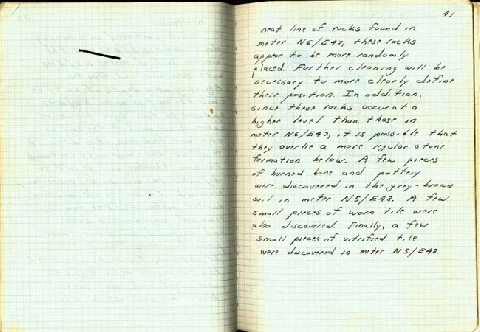 41
neat line of rocks found in
meter N5/E42, these rocks
appear to be more randomly
placed. Further cleaning will be
necessary to more clearly define
their position. In addition,
since these rocks occur at a
higher level than those in
meter N5/E42, it is possible that
they overlie a more regular stone
formation below. A few pieces
of burned bone and pottery
were discovered in the grey-brown
soil in meter N5/E43. A few
small pieces of worn tile were
also discovered. Finally, a few
small pieces of vitrified tile
were discovered in meter N5/E43